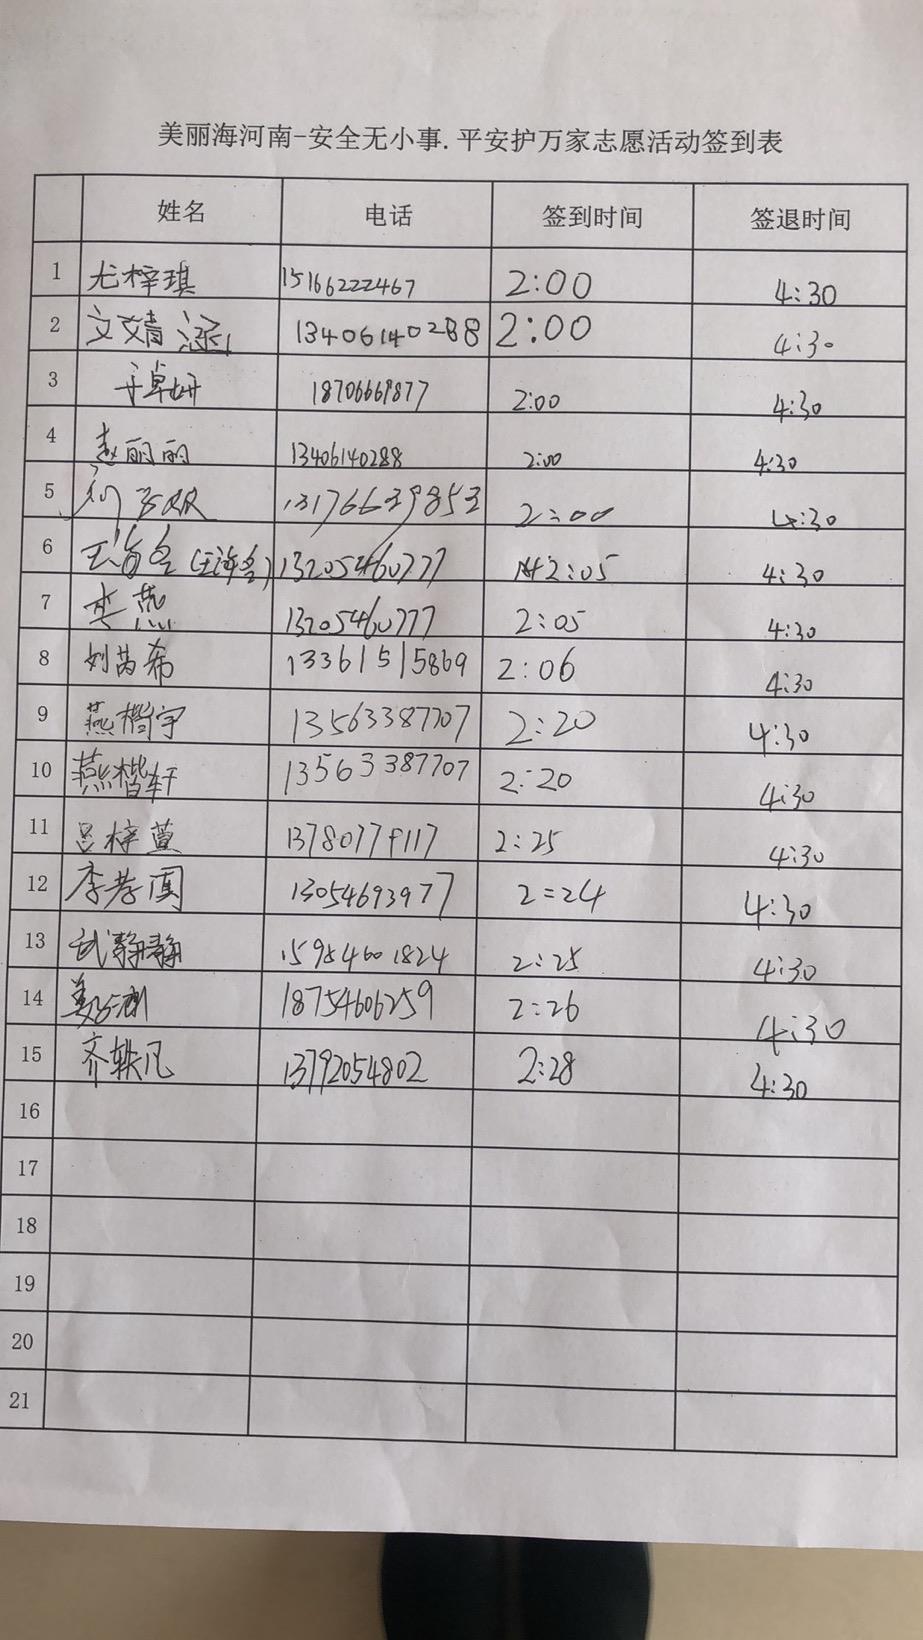 美丽海河南-安全无小事.平安护万家志愿活动签到表
姓名 电话 签到时间 签退时间
1 尤梓琪 15166222467 2:00 4:30
2 文婧涵 13406140288 2:00 4:30
3 于卓妍 18706669877 2:00 4:30
4 赵丽丽 13406140288 2:00 4:30
5 13176639853 2:00 4:30
6 13205460777 2:05 4:30
7 李燕 13205460777 2:05 4:30
8 刘芮希 13361515869 2:06 4:30
9 燕楷宇 13563387707 2:20 4:30
10 燕楷轩 13563387707 2:20 4:30
11 吕梓萱 2:25 4:30
12 李孝真 13054693977 2:24 4:30
13 武静静 15954601824 2:25 4:30
14 18754606259 2:26 4:30
15 齐轶凡 13792054802 2:28 4:30
16
17
18
19
20
21